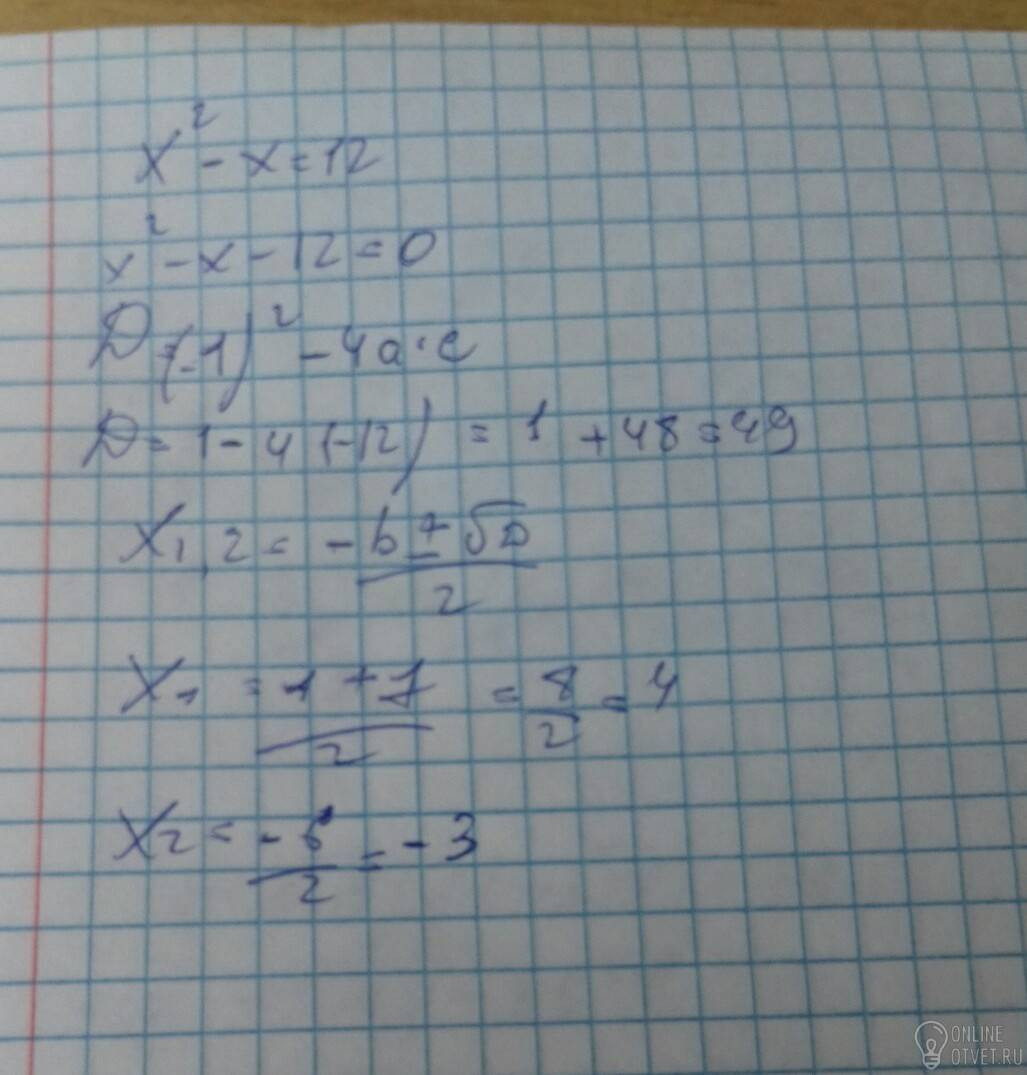 x² - x = 12
x² - x - 12 = 0
D = (-1)² - 4a·c
D = 1 - 4(-12) = 1 + 48 = 49
X₁,₂ = (-b ± √D)/2
X₁ = (1 + 7)/2 = 8/2 = 4
X₂ = -6/2 = -3
ONLINE
OTVET.RU